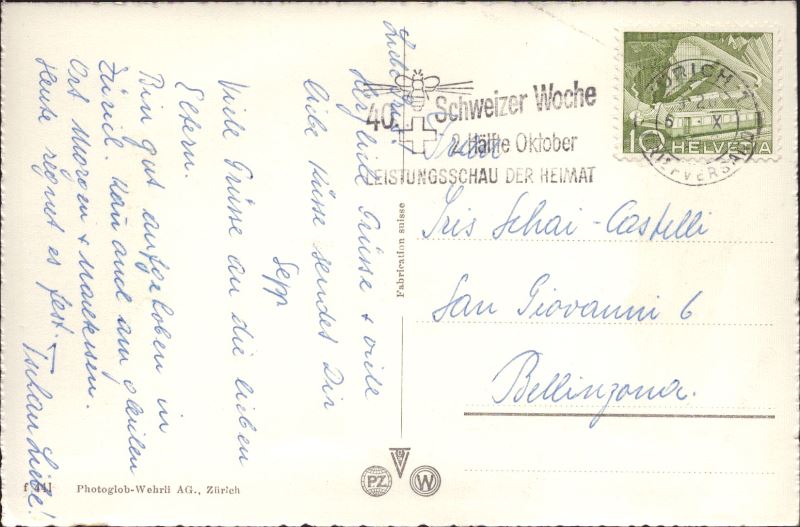 Herzliche Grüsse & viele
liebe Küsse sendet Dir
Sepp
Viele Grüsse an die lieben
Eltern.
Bin gut aufgehoben in
Zürich. Kam auch am gleichen
Ort Morgen & 
Heute regnet es fest. Tschau Liebe!
40. Schweizer Woche
2. Hälfte Oktober
LEISTUNGSSCHAU DER HEIMAT
ZÜRICH
X
BRIEFVERSAND
10 HELVETIA
Iris Schai-Castelli
San Giovanni 6
Bellinzona.
Fabrication suisse
f 441 Photoglob-Wehrli AG., Zürich
PZ
W